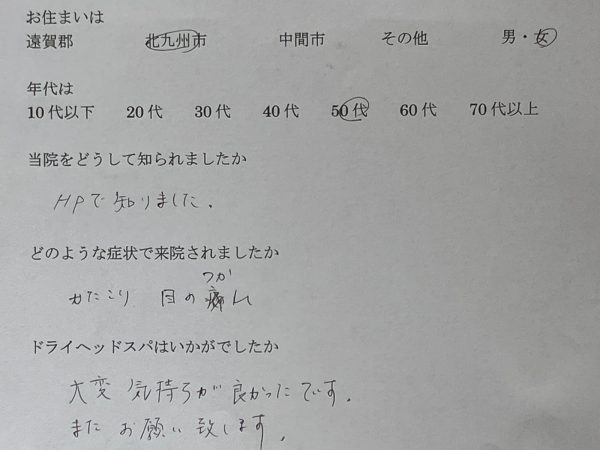 お住まいは
遠賀郡 北九州市 中間市 その他 男・女
年代は
10代以下 20代 30代 40代 50代 60代 70代以上
当院をどうして知られましたか
HPで知りました。
どのような症状で来院されましたか
つか
かたこり 目の れ
ドライヘッドスパはいかがでしたか
大変 気持ちが良かったです。
またお願い致します。